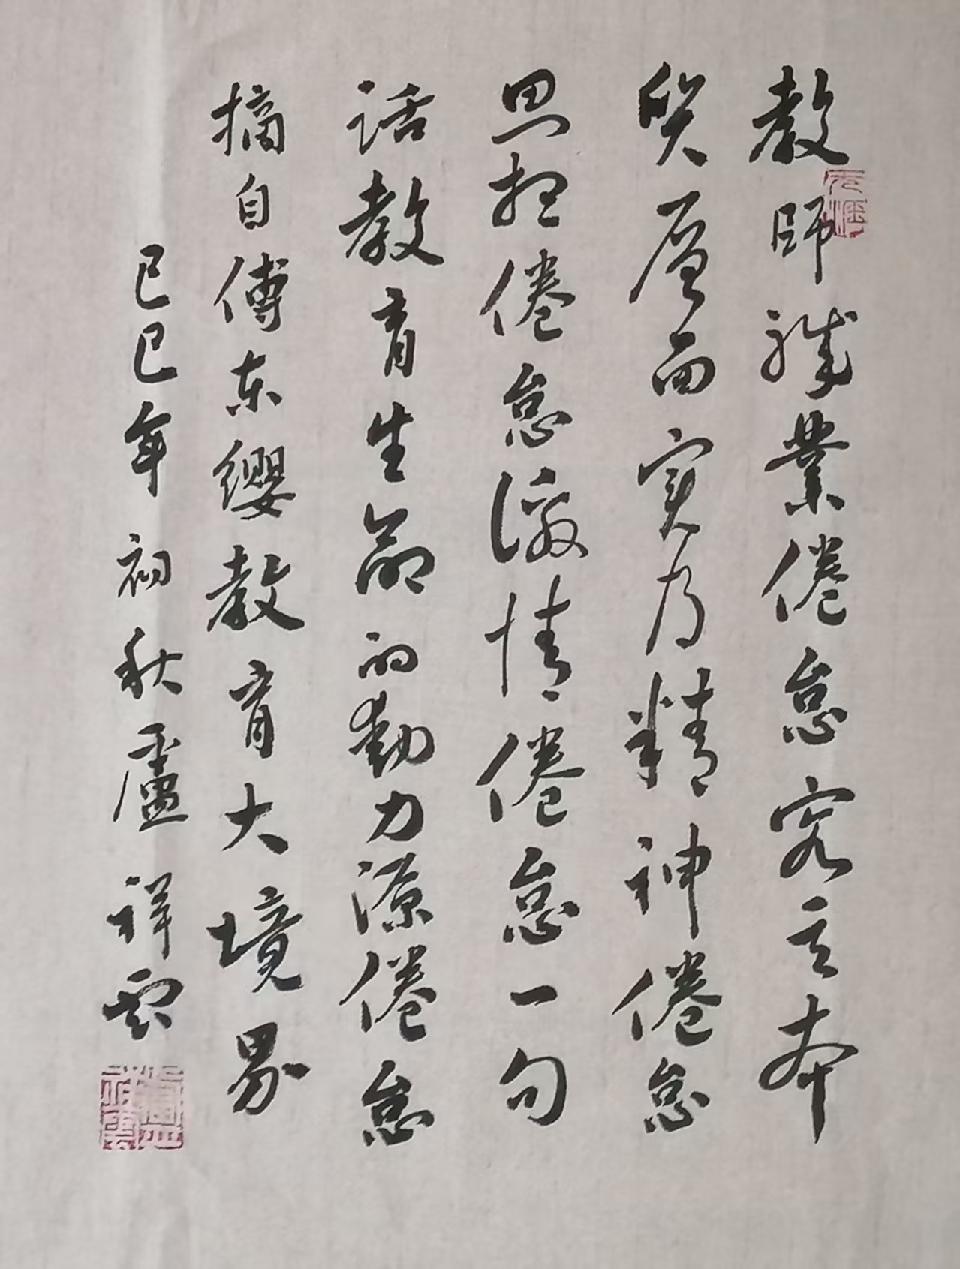 教師職業倦怠究其本
質層面实乃精神倦怠
思想倦怠激情倦怠一句
話教育生命的動力源倦怠
摘自傅东缨教育大境界
己巳年初秋盧祥云